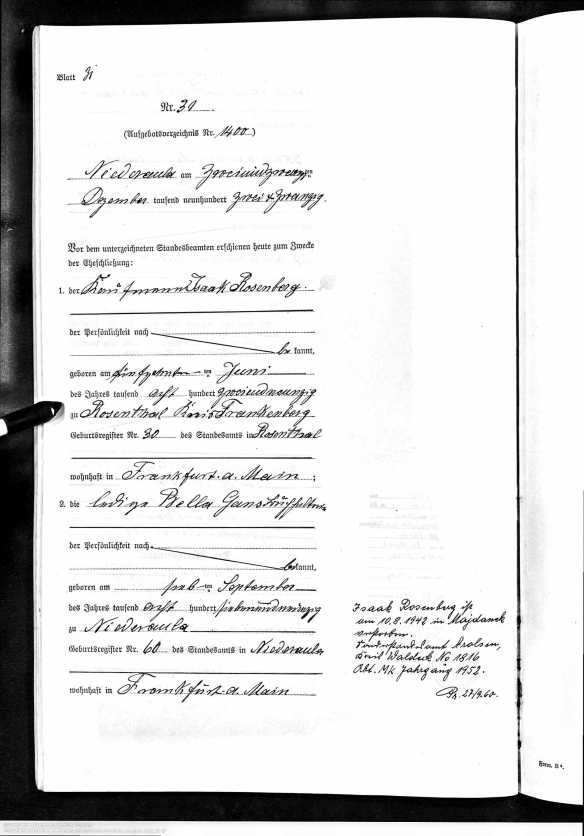 Blatt 31
Nr. 31
(Aufgebotsverzeichnis Nr. 1400)
Niederaula am zweiundzwanzigsten
Dezember tausend neunhundert zwei & zwanzig.
Vor dem unterzeichneten Standesbeamten erschienen heute zum Zwecke
der Eheschließung:
1. der Kaufmann Isaak Rosenberg.
der Persönlichkeit nach
be kannt,
geboren am fünfzehnten Juni
des Jahres tausend acht hundert zweiundneunzig
zu Rosenthal Kreis Frankenberg
Geburtsregister Nr. 30 des Standesamts in Rosenthal
wohnhaft in Frankfurt a. Main ;
2. die ledige Bella Gans
der Persönlichkeit nach
bekannt,
geboren am September
des Jahres tausend acht hundert siebenundneunzig
zu Niederaula
Geburtsregister Nr. 60 des Standesamts in Niederaula
wohnhaft in Frankfurt a. Main
Isaak Rosenberg ist
am 10.8.1942 in Majdanek
verstorben.
Sonderstandesamt Arolsen,
Kreis Waldeck No 1816
Abt. M Jahrgang 1952.
27/9.60.
Form. B*.